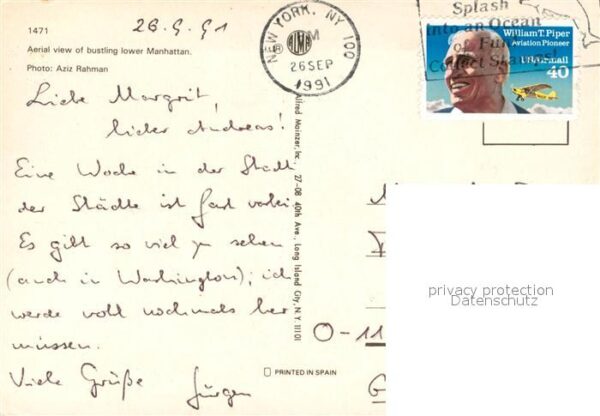 1471
26.9.91
Aerial view of bustling lower Manhattan.
Photo: Aziz Rahman
Liebe Margrit,
lieber Andreas!
Eine Woche in der Stadt
der Städte ist fast vorbei.
Es gibt so viel zu sehen
(auch in Washington); ich
werde wohl nochmals her
müssen.
Viele Grüße
Jürgen
NEW YORK, NY 100
PM
26 SEP
1991
Splash
Into an Ocean
of Fun!
Collect Stamps!
William T. Piper
Aviation Pioneer
US Airmail
40
Alfred Mainzer, Inc. 27-08 40th Ave., Long Island City, N.Y. 11101
O-11
PRINTED IN SPAIN
privacy protection
Datenschutz